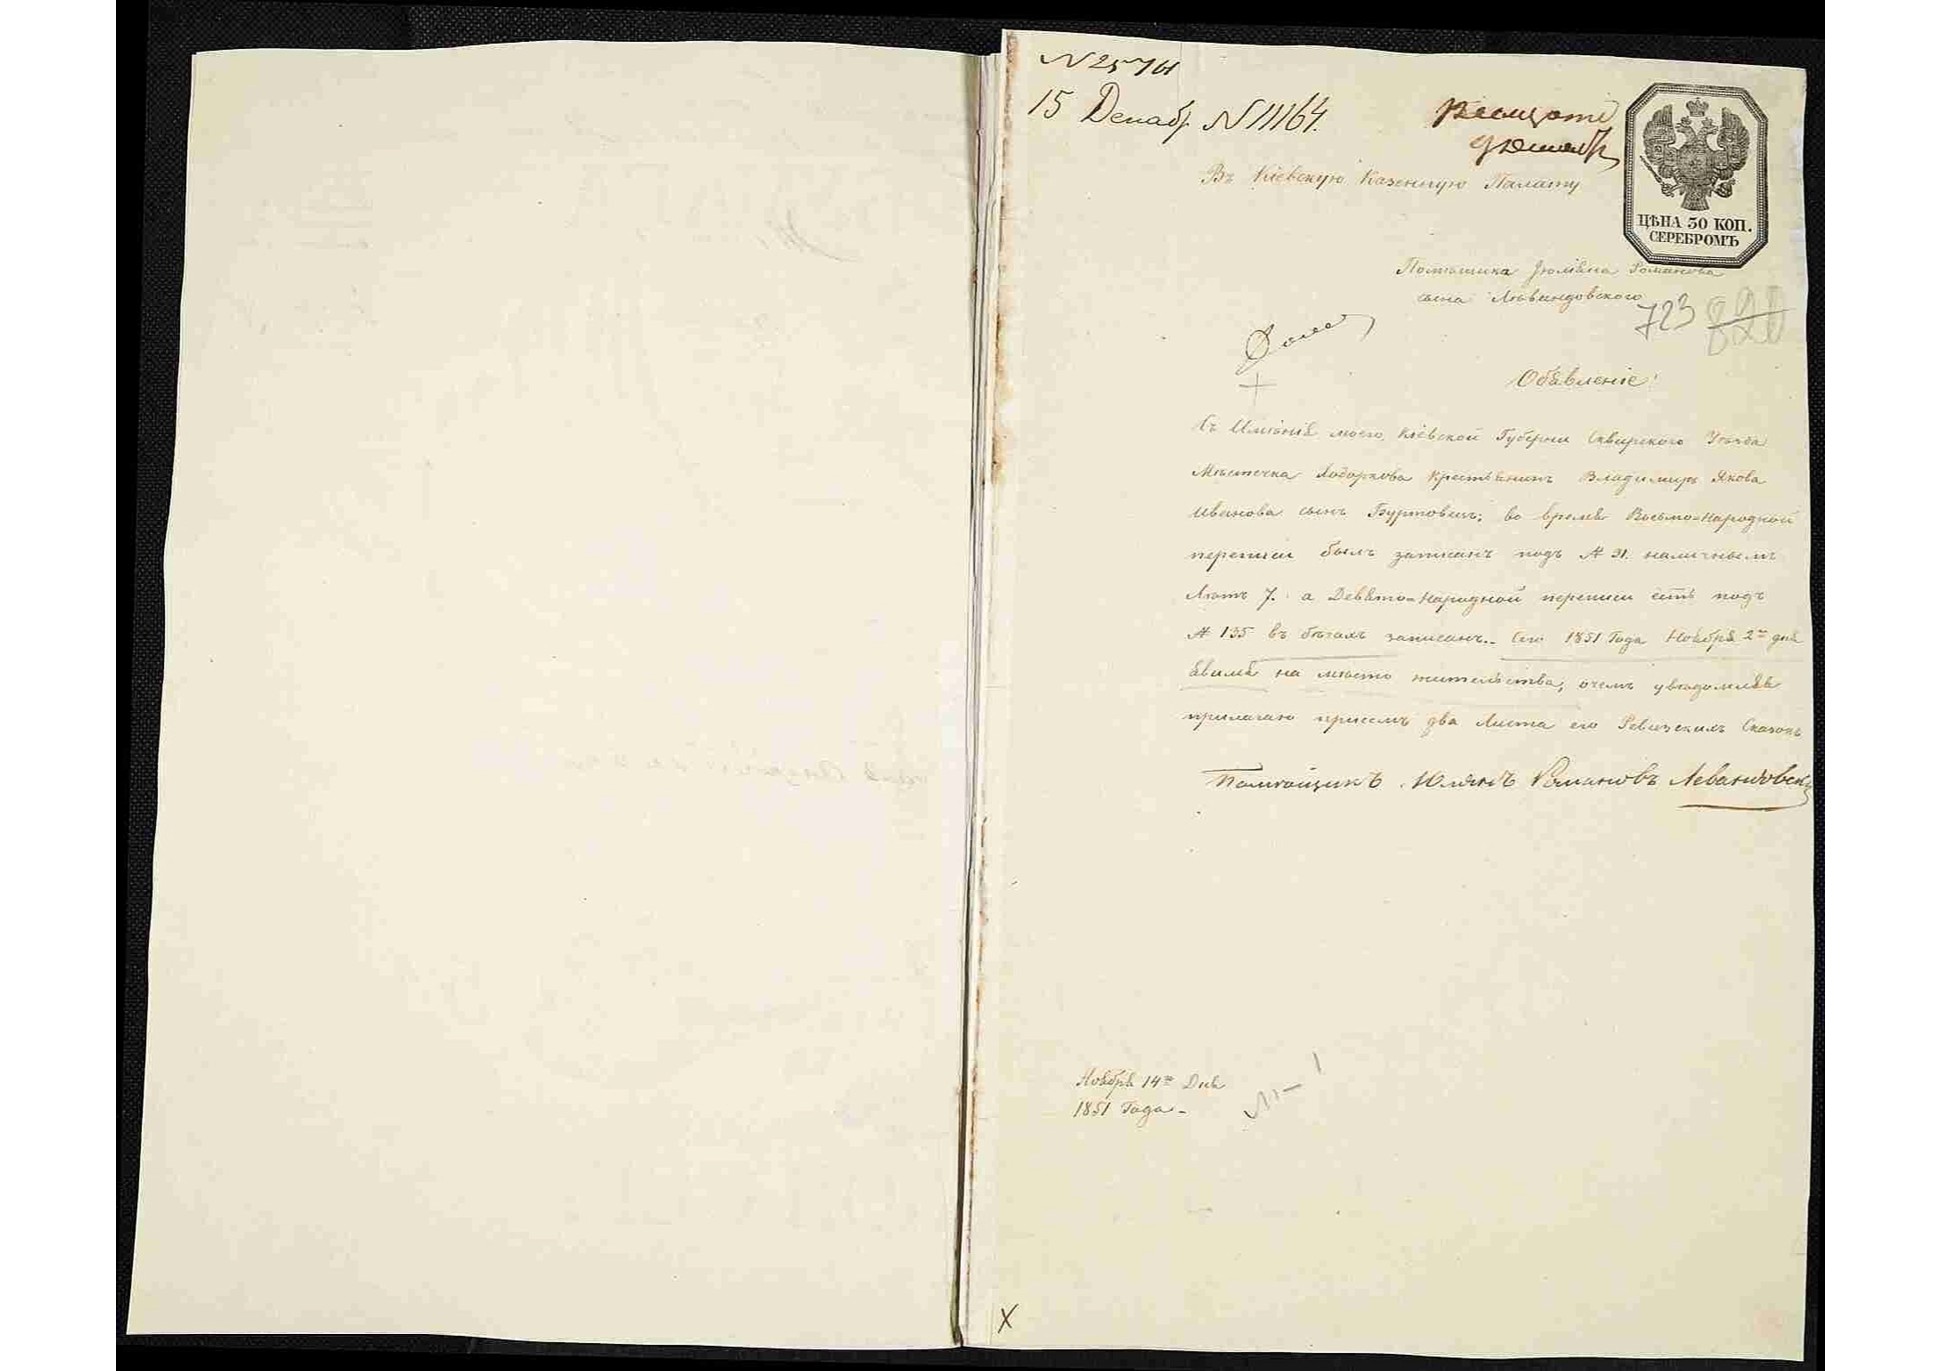 N 25761
15 Декабр N 11164.
Въ Кіевскую Казенную Палату
ЦѢНА 30 КОП.
СЕРЕБРОМЪ
Помѣщика Юліяна Романова
сына Лѣвандовского
723 820
Обявленіе!
Съ Имѣнія моего, Кіевской Губерни Сквирского Уѣзда
Мѣстечка Ходоркова крестьянинъ Владимиръ Якова
Иванова сынъ Буртовичъ; во время Восьмо-Народной
переписи былъ записанъ подъ № 31. наличнымъ
Лѣтъ 7. а Девято-Народной переписи естъ подъ
№ 135 въ бѣгахъ записанъ. Сего 1851 Года Ноября 2го дня
явился на мѣсто жительства, очемъ увѣдомляя
прилагаю присемъ два Листа его Ревизскихъ Сказокъ
Помѣщикъ Юліянъ Романовъ Левандовски
Ноября 14го Дня
1851 Года
X